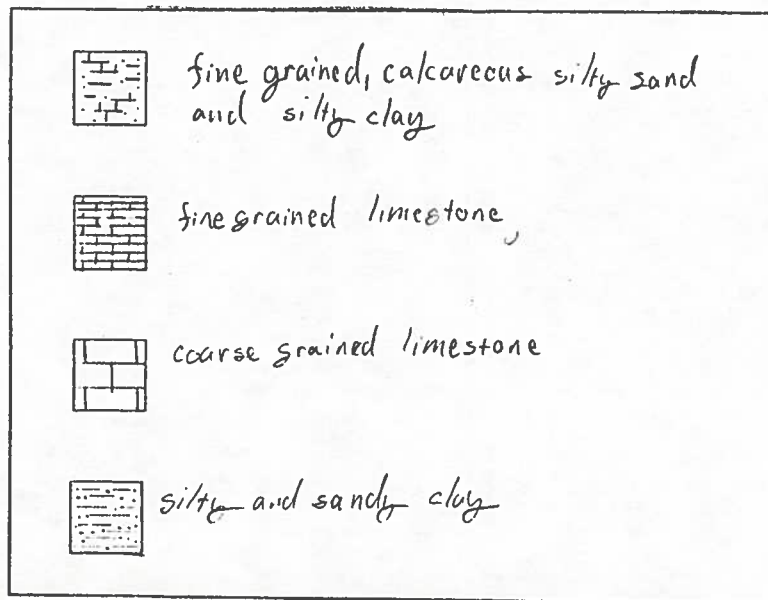 fine grained, calcareous silty sand
and silty clay
fine grained limestone,
coarse grained limestone
silty and sandy clay